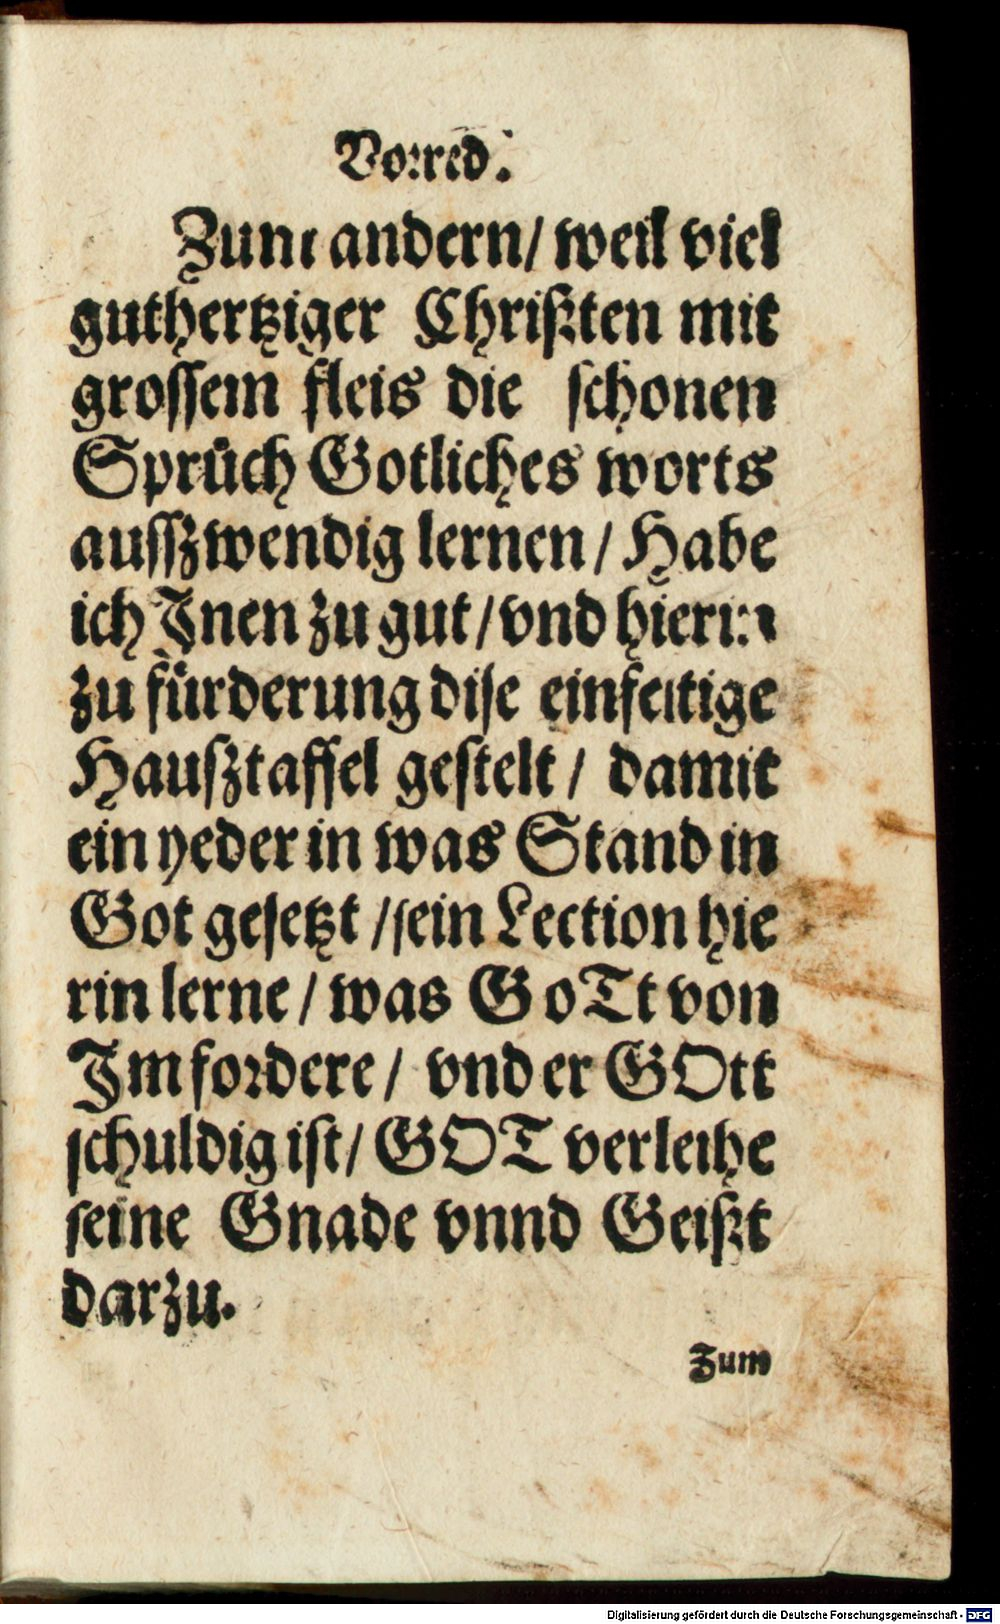 Vorred.
Zum andern/ weil viel
guthertziger Chrißten mit
grossem fleis die schonen
Sprůch Gotliches worts
ausszwendig lernen / Habe
ich Jnen zu gut / vnd hierin
zu fürderung dise einfeltige
Hausztaffel gestelt / damit
ein yeder in was Stand in
Got gesetzt / sein Lection hie
rin lerne / was GoTt von
Jm fordere / vnd er GOtt
schuldig ist / GOT verleihe
seine Gnade vnnd Geißt
darzu.
Zum
Digitalisierung gefördert durch die Deutsche Forschungsgemeinschaft - DFG